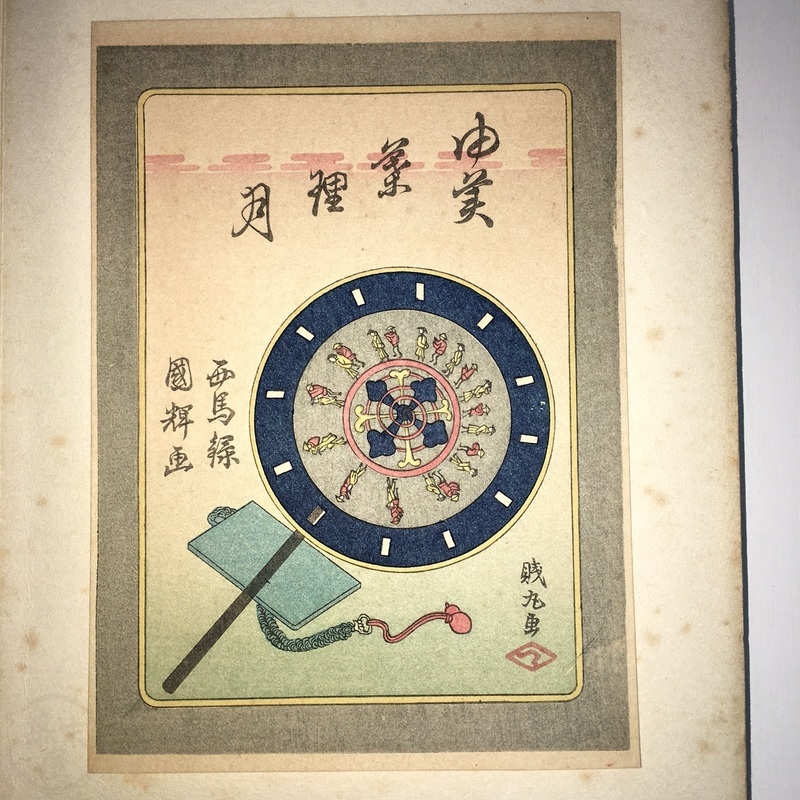 由美
葉
理
月
西馬録
國輝画
賎丸画